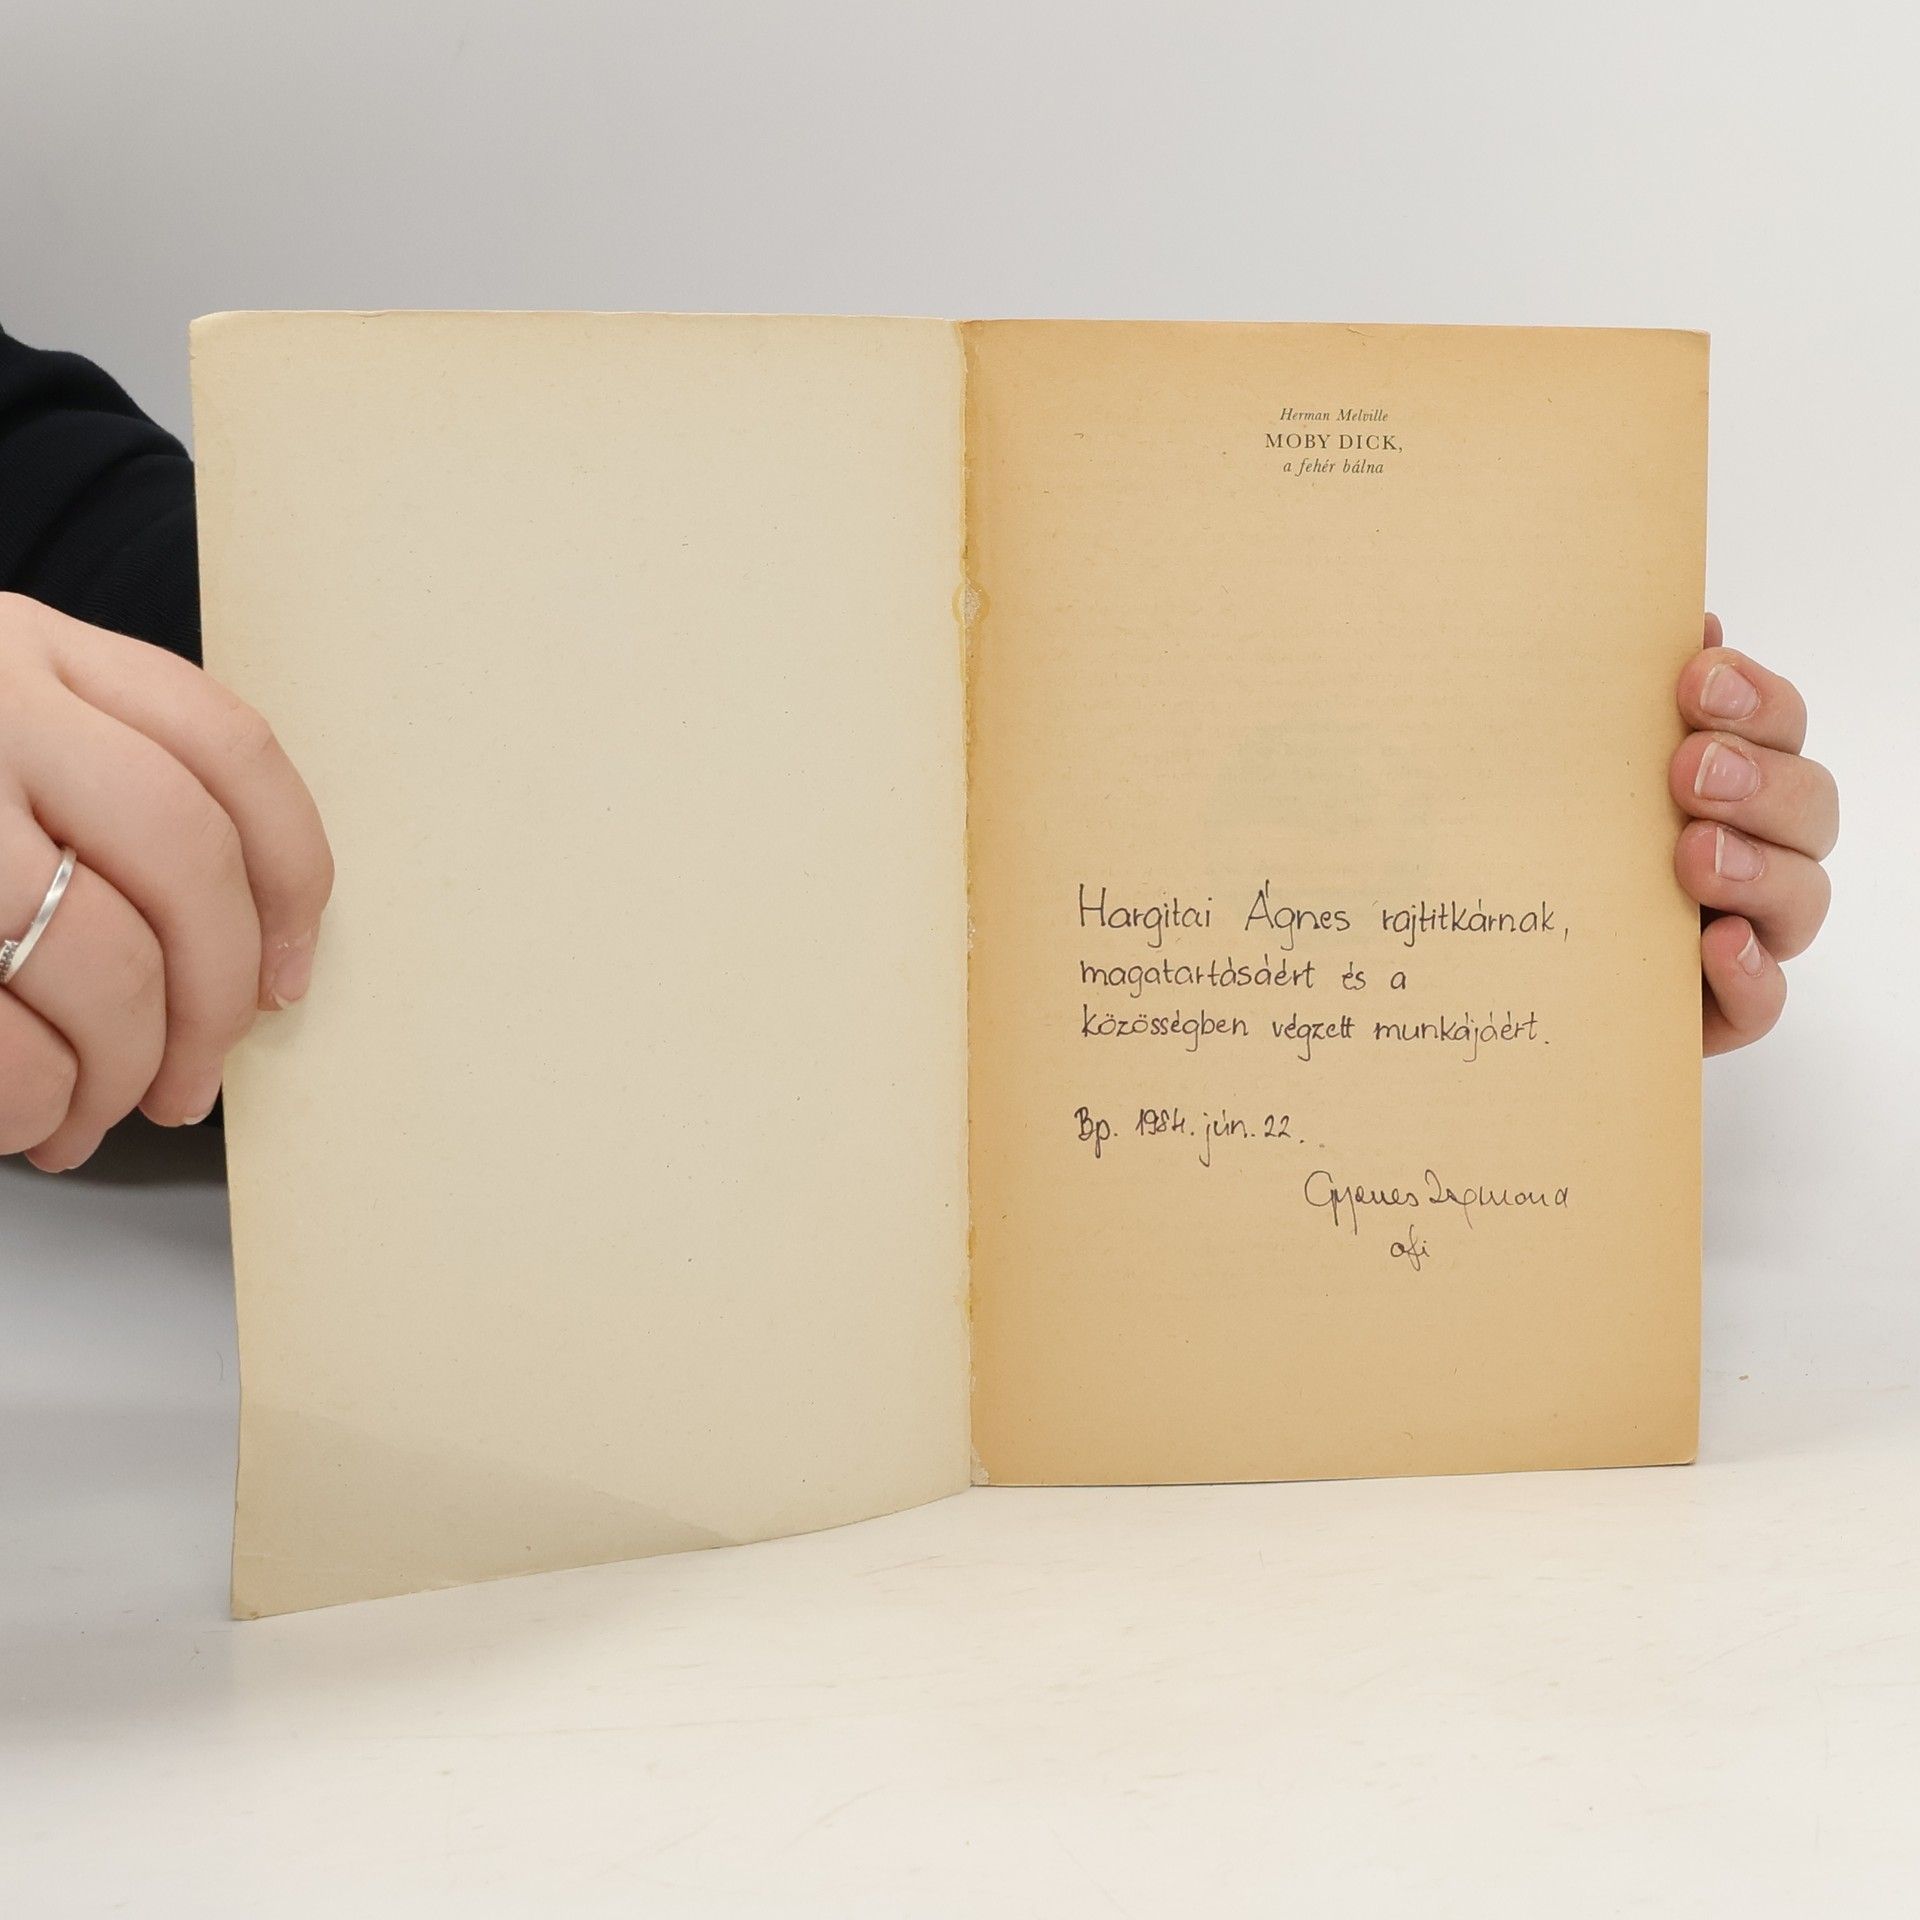 Herman Melville
MOBY DICK,
a fehér bálna
Hargitai Ágnes rajtitkárnak,
magatartásáért és a
közösségben végzett munkájáért.
Bp. 1984. jún. 22.
Gyenes
ofi